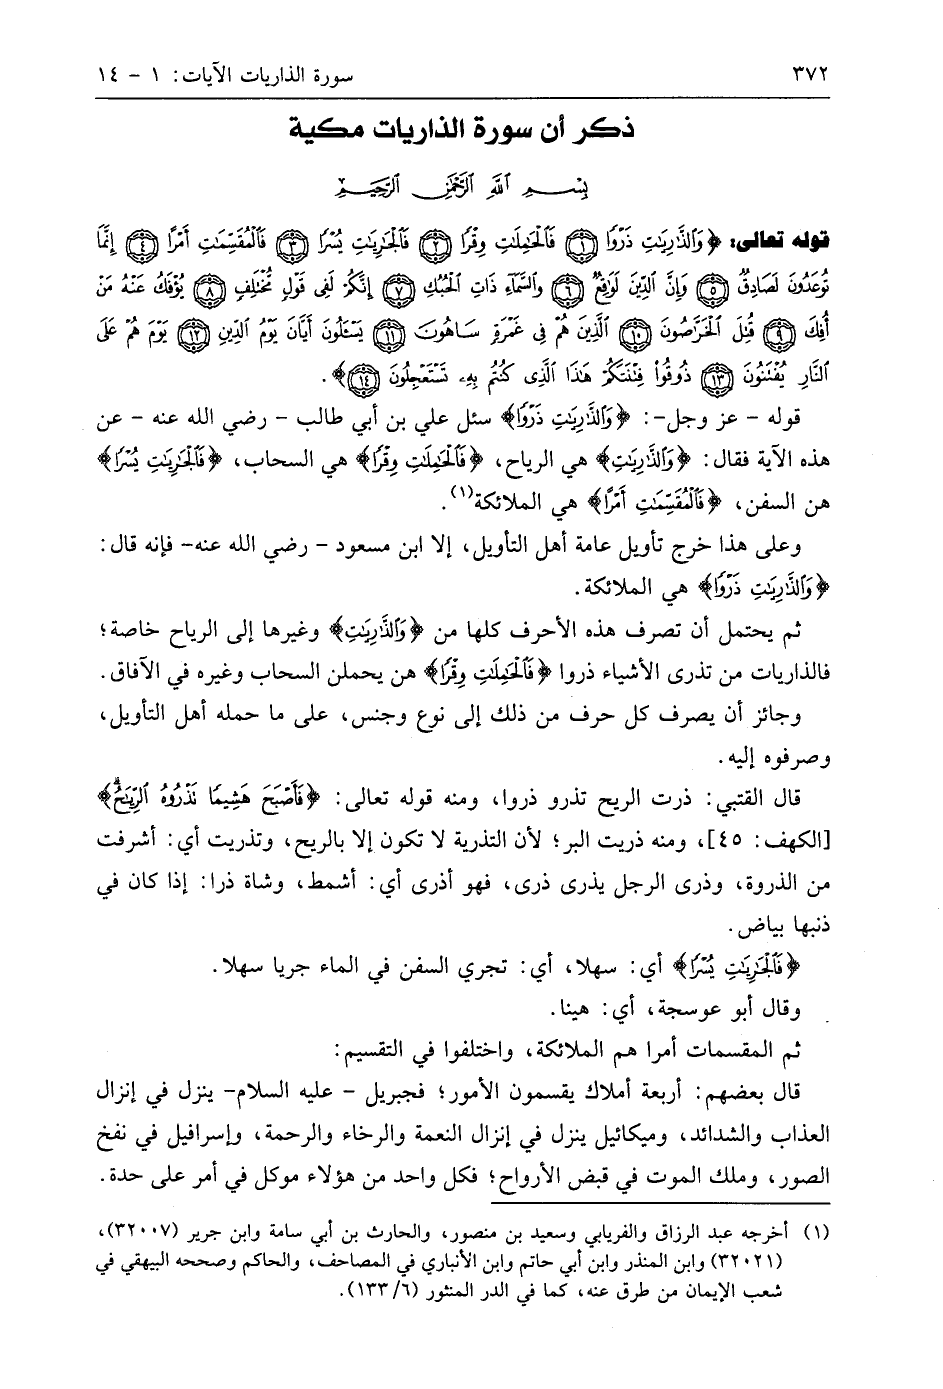 ٣٧٢ سورة الذاريات الآيات: ١ - ١٤
ذكر أن سورة الذاريات مكية
بِسْمِ ٱللَّهِ ٱلرَّحْمَٰنِ ٱلرَّحِيمِ
قوله تعالى: ﴿وَٱلذَّٰرِيَٰتِ ذَرْوًا ١ فَٱلْحَٰمِلَٰتِ وِقْرًا ٢ فَٱلْجَٰرِيَٰتِ يُسْرًا ٣ فَٱلْمُقَسِّمَٰتِ أَمْرًا ٤ إِنَّمَا
تُوعَدُونَ لَصَادِقٌ ٥ وَإِنَّ ٱلدِّينَ لَوَٰقِعٌ ٦ وَٱلسَّمَآءِ ذَاتِ ٱلْحُبُكِ ٧ إِنَّكُمْ لَفِى قَوْلٍ مُّخْتَلِفٍ ٨ يُؤْفَكُ عَنْهُ مَنْ
أُفِكَ ٩ قُتِلَ ٱلْخَرَّٰصُونَ ١٠ ٱلَّذِينَ هُمْ فِى غَمْرَةٍ سَاهُونَ ١١ يَسْـَٔلُونَ أَيَّانَ يَوْمُ ٱلدِّينِ ١٢ يَوْمَ هُمْ عَلَى
ٱلنَّارِ يُفْتَنُونَ ١٣ ذُوقُوا۟ فِتْنَتَكُمْ هَٰذَا ٱلَّذِى كُنتُم بِهِۦ تَسْتَعْجِلُونَ ١٤﴾.
قوله - عز وجل-: ﴿وَٱلذَّٰرِيَٰتِ ذَرْوًا﴾ سئل علي بن أبي طالب - رضي الله عنه - عن
هذه الآية فقال: ﴿وَٱلذَّٰرِيَٰتِ﴾ هي الرياح، ﴿فَٱلْحَٰمِلَٰتِ وِقْرًا﴾ هي السحاب، ﴿فَٱلْجَٰرِيَٰتِ يُسْرًا﴾
هن السفن، ﴿فَٱلْمُقَسِّمَٰتِ أَمْرًا﴾ هي الملائكة(١).
وعلى هذا خرج تأويل عامة أهل التأويل، إلا ابن مسعود - رضي الله عنه- فإنه قال:
﴿وَٱلذَّٰرِيَٰتِ ذَرْوًا﴾ هي الملائكة.
ثم يحتمل أن تصرف هذه الأحرف كلها من ﴿وَٱلذَّٰرِيَٰتِ﴾ وغيرها إلى الرياح خاصة؛
فالذاريات من تذرى الأشياء ذروا ﴿فَٱلْحَٰمِلَٰتِ وِقْرًا﴾ هن يحملن السحاب وغيره في الآفاق.
وجائز أن يصرف كل حرف من ذلك إلى نوع وجنس، على ما حمله أهل التأويل،
وصرفوه إليه.
قال القتبي: ذرت الريح تذرو ذروا، ومنه قوله تعالى: ﴿فَأَصْبَحَ هَشِيمًا تَذْرُوهُ ٱلرِّيَٰحُ﴾
[الكهف: ٤٥]، ومنه ذريت البر؛ لأن التذرية لا تكون إلا بالريح، وتذريت أي: أشرفت
من الذروة، وذرى الرجل يذرى ذرى، فهو أذرى أي: أشمط، وشاة ذرا: إذا كان في
ذنبها بياض.
﴿فَٱلْجَٰرِيَٰتِ يُسْرًا﴾ أي: سهلا، أي: تجري السفن في الماء جريا سهلا.
وقال أبو عوسجة، أي: هينا.
ثم المقسمات أمرا هم الملائكة، واختلفوا في التقسيم:
قال بعضهم: أربعة أملاك يقسمون الأمور؛ فجبريل - عليه السلام- ينزل في إنزال
العذاب والشدائد، وميكائيل ينزل في إنزال النعمة والرخاء والرحمة، وإسرافيل في نفخ
الصور، وملك الموت في قبض الأرواح؛ فكل واحد من هؤلاء موكل في أمر على حدة.
(١) أخرجه عبد الرزاق والفريابي وسعيد بن منصور، والحارث بن أبي سامة وابن جرير (٣٢٠٠٧)،
(٣٢٠٢١) وابن المنذر وابن أبي حاتم وابن الأنباري في المصاحف، والحاكم وصححه البيهقي في
شعب الإيمان من طرق عنه، كما في الدر المنثور (٦/ ١٣٣).